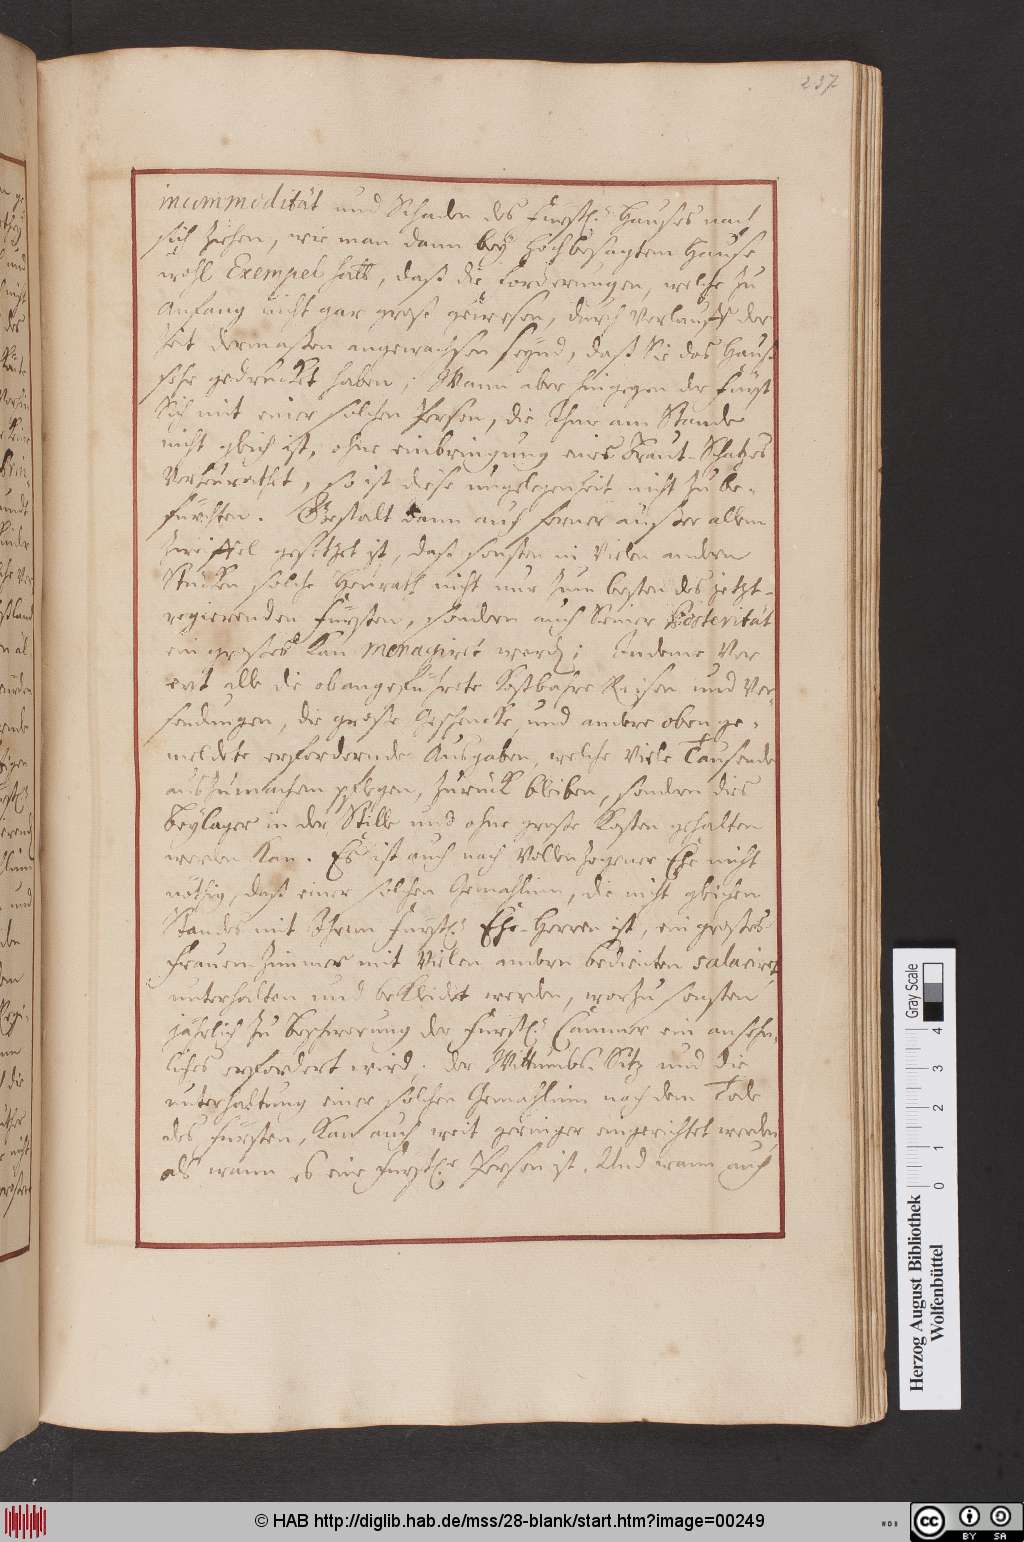 237
incommodität und Schaden des Fürstl. Hauses nach
sich ziehen, wie man dann bey hochbesagtem Hause
wohl Exempel hatt, daß die forderungen, welche zu
Anfang nicht gar groß gewesen, durch Verlauff der
Zeit dermaßen angewachsen seynd, daß Sie das Hauß
sehr gedrucket haben; Wann aber hingegen der Fürst
Sich mit einer solchen Person, die Ihme am Stande
nicht gleich ist, ohne einbringung eines Braut-Schatzes
Verheurathet, so ist diese ungelegenheit nicht zu be-
fürchten. Gestalt dann auch ferner ausser allem
Zweiffel gesetzet ist, daß sonsten in Vielen andern
Stücken solche Heurath nicht nur zum besten des jetzt-
regierenden Fürsten, sondern auch Seiner Posterität
ein großes kan menagiret werden; Indeme
alle die obangeführete Kostbahre Reisen und Ver-
sendungen, die große Geschencke, und andere oben ge-
meldete erfordernde Ausgaben, welche Viele Tausende
auszumachen pflegen, zurück bleiben, sondern dies
Beylager in der Stille und ohne große Kosten gehalten
werden kan. Es ist auch nach Vollenzogener Ehe nicht
nöthig, daß einer solchen Gemahlinn, die nicht gleichen
Standes mit Ihrem Fürstl. Ehe-Herren ist, ein großes
Frauen-Zimmer mit Vielen andern bedienten salariret,
unterhalten und bekleidet werden, worzu sonsten
jährlich zu beschwerung der Fürstl. Cammer ein ansehn-
liches erfordert wird. Der Wittumbs-Sitz und die
unterhaltung einer solchen Gemahlinn nach dem Tode
des Fürsten, kan auch weit geringer eingerichtet werden,
als wann es eine Fürstl. Person ist. Und wann auch
Herzog August Bibliothek
Wolfenbüttel
Gray Scale
0 1 2 3 4
© HAB http://diglib.hab.de/mss/28-blank/start.htm?image=00249
WDB
cc BY SA